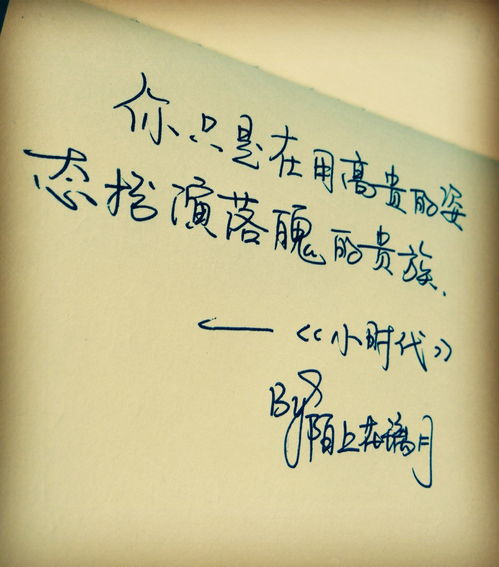 你只是在用高贵的姿
态扮演落魄的贵族.
—《小时代》
By 陌上花 月